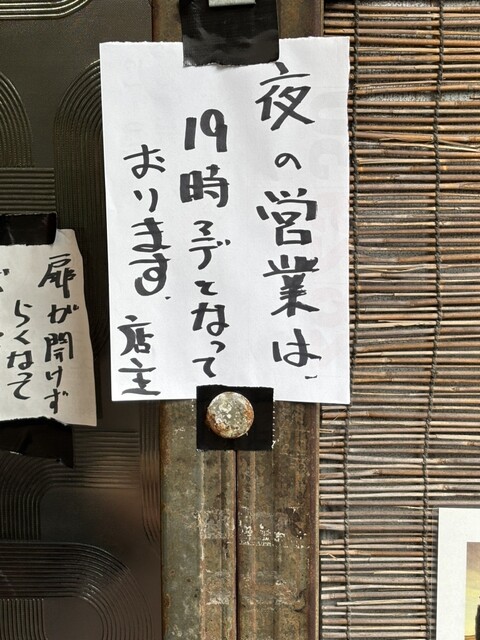 夜の営業は、
19時マデとなって
おります。店主
扉が開けず
らくなって